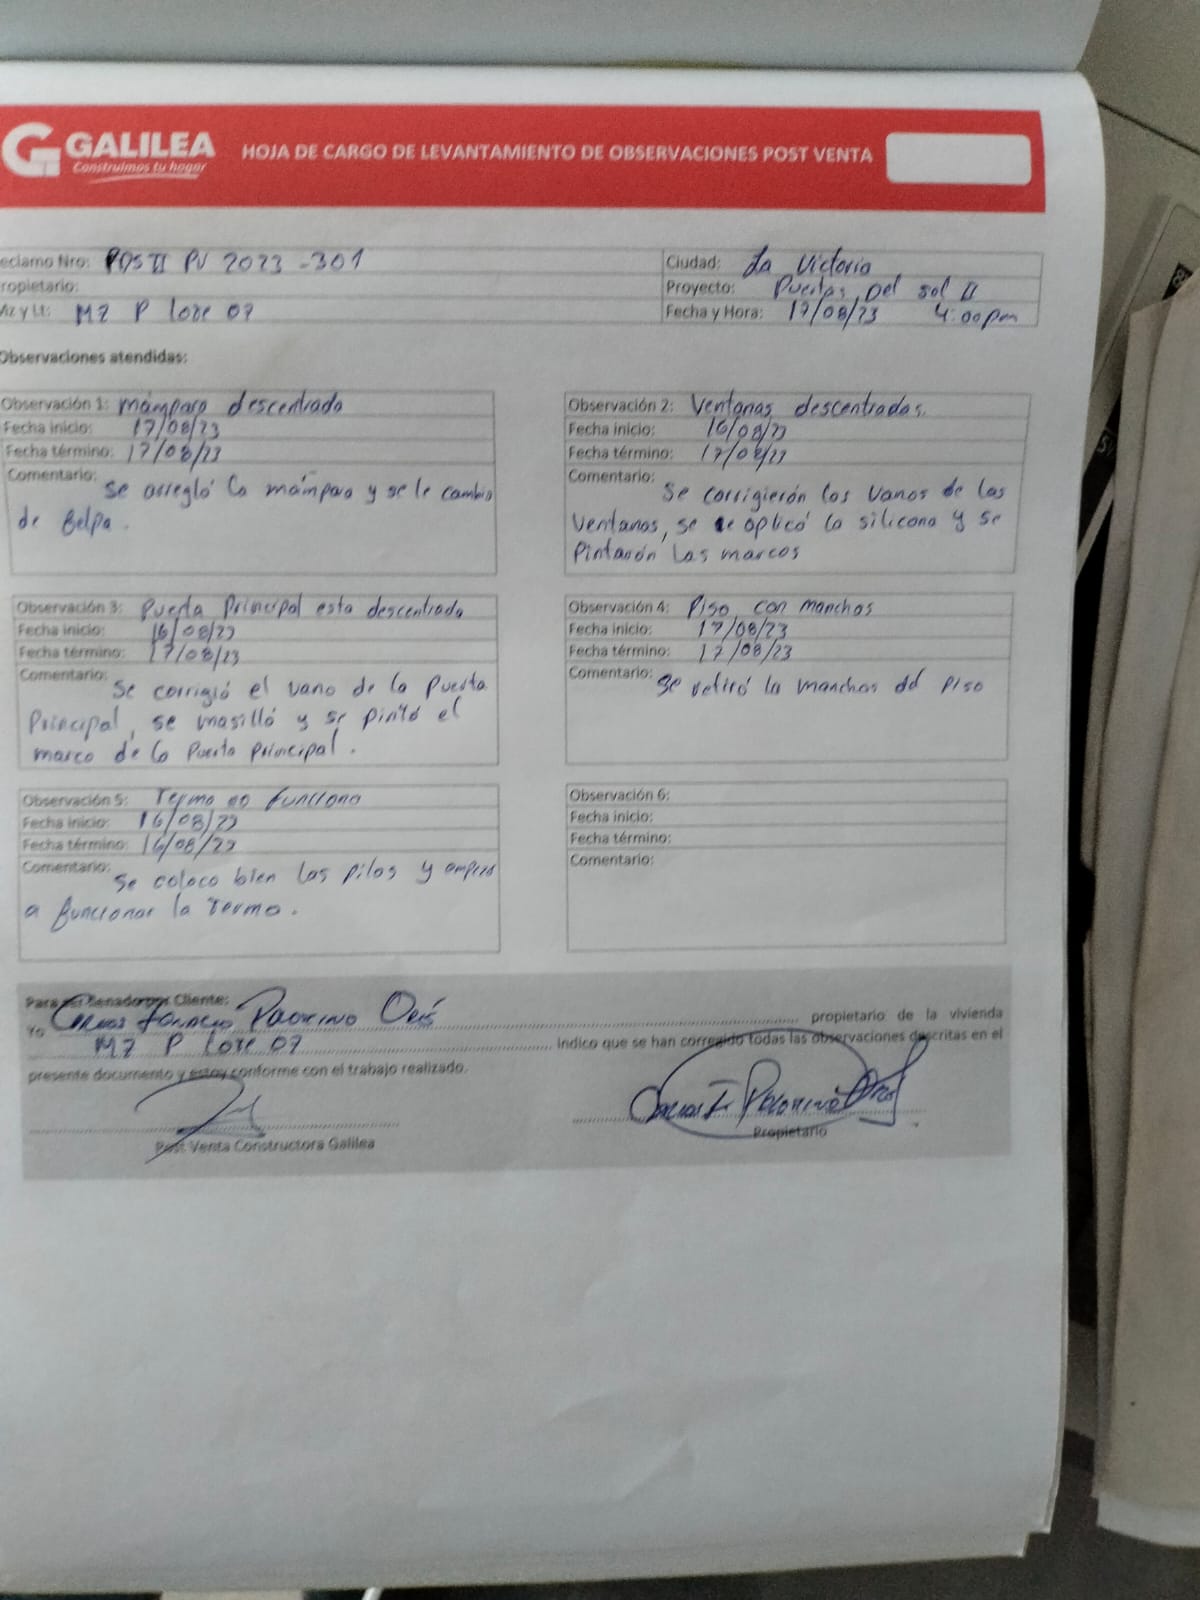 GALILEA
Construimos tu hogar
HOJA DE CARGO DE LEVANTAMIENTO DE OBSERVACIONES POST VENTA
eclamo Nro: PDS II PV 2023 - 301
Ciudad: La Victoria
ropietario:
Proyecto: Puertas Del Sol II
Mz y Lt: MZ P Lote 07
Fecha y Hora: 17/08/23 4:00pm
Observaciones atendidas:
Observación 1: mámpara descentrada
Fecha inicio: 17/08/23
Fecha término: 17/08/23
Comentario: Se arregló la mámpara y se le cambio
de Felpa.
Observación 2: Ventanas descentradas.
Fecha inicio: 16/08/23
Fecha término: 17/08/23
Comentario: Se corrigierón los vanos de las
ventanas, se le aplicó la silicona y se
Pintarón Las marcos
Observación 3: Puerta Principal esta descentrada
Fecha inicio: 16/08/23
Fecha término: 17/08/23
Comentario: Se corrigió el vano de la Puerta
Principal, se masilló y se pintó el
marco de la Puerta principal.
Observación 4: Piso con manchas
Fecha inicio: 17/08/23
Fecha término: 17/08/23
Comentario: Se retiró la manchas del Piso
Observación 5: Termo no funciona
Fecha inicio: 16/08/23
Fecha término: 16/08/23
Comentario: Se coloco bien las pilas y empezo
a funcionar la Termo.
Observación 6:
Fecha inicio:
Fecha término:
Comentario:
Para ser llenado por Cliente:
Yo Carlos Ignacio Palomino propietario de la vivienda
MZ P Lote 07 Indico que se han corregido todas las observaciones descritas en el
presente documento y estoy conforme con el trabajo realizado.
Post Venta Constructora Galilea
Carlos I. Palomino
Propietario